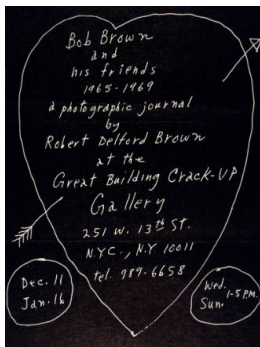 Bob Brown
and
his friends
1965-1969
a photographic journal
by
Robert Delford Brown
at the
Great Building Crack-UP
Gallery
251 W. 13th ST.
N.Y.C., N.Y 10011
tel. 989-6658
Dec. 11
Jan. 16
Wed.
Sun.
1-5 P.M.